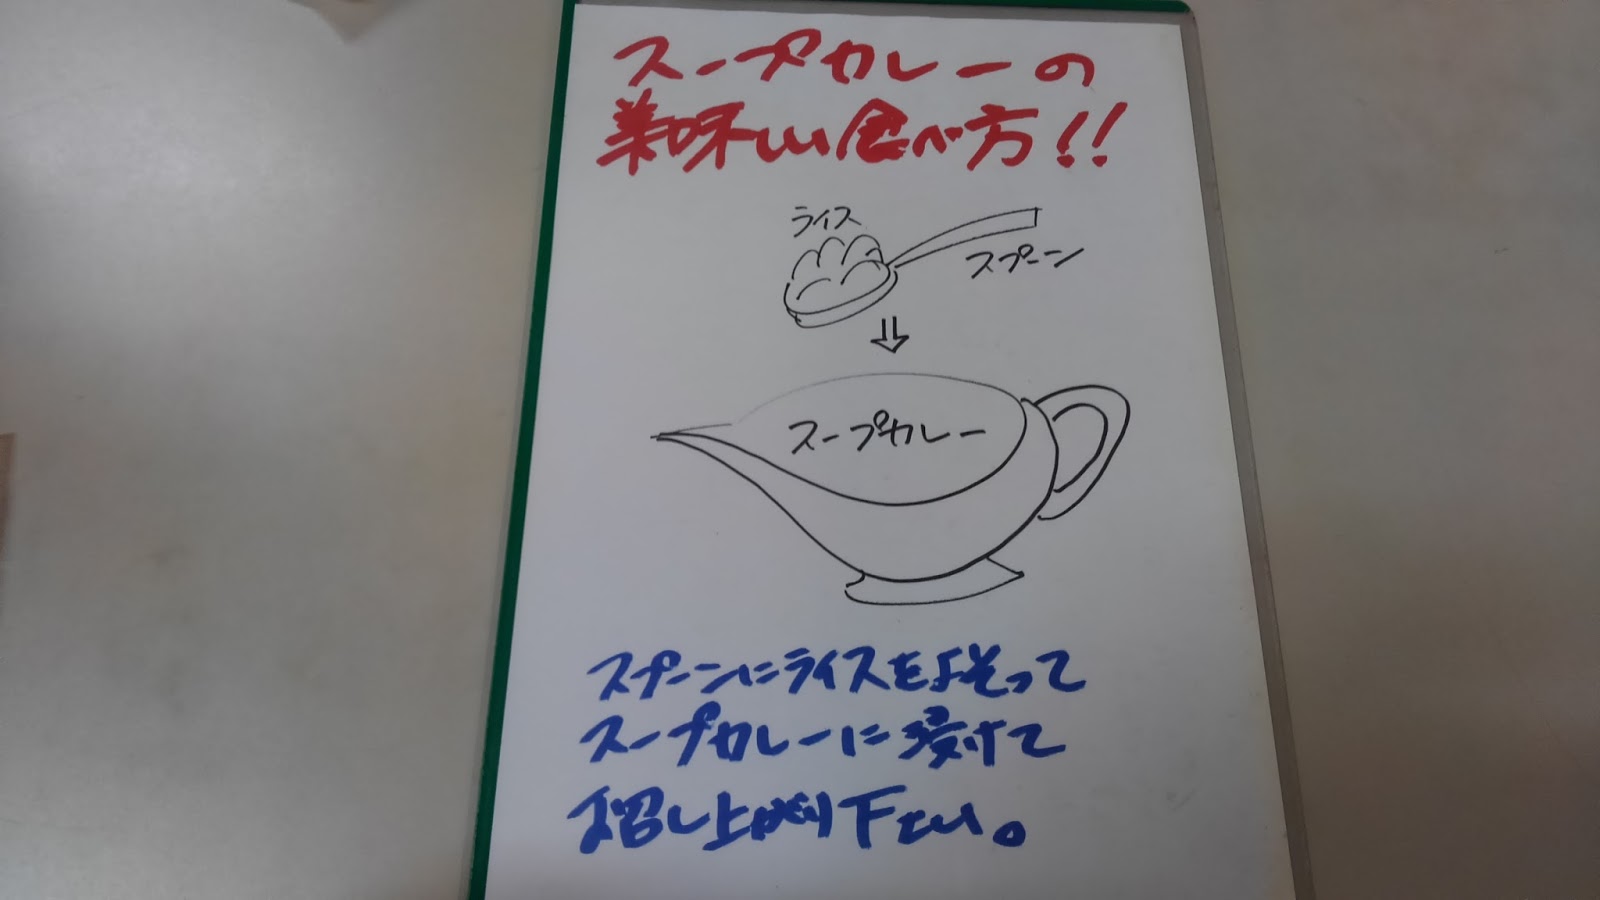 スープカレーの
美味しい食べ方!!
ライス
スプーン
スープカレー
スプーンにライスをよそって
スープカレーに浸けて
お召し上がり下さい。